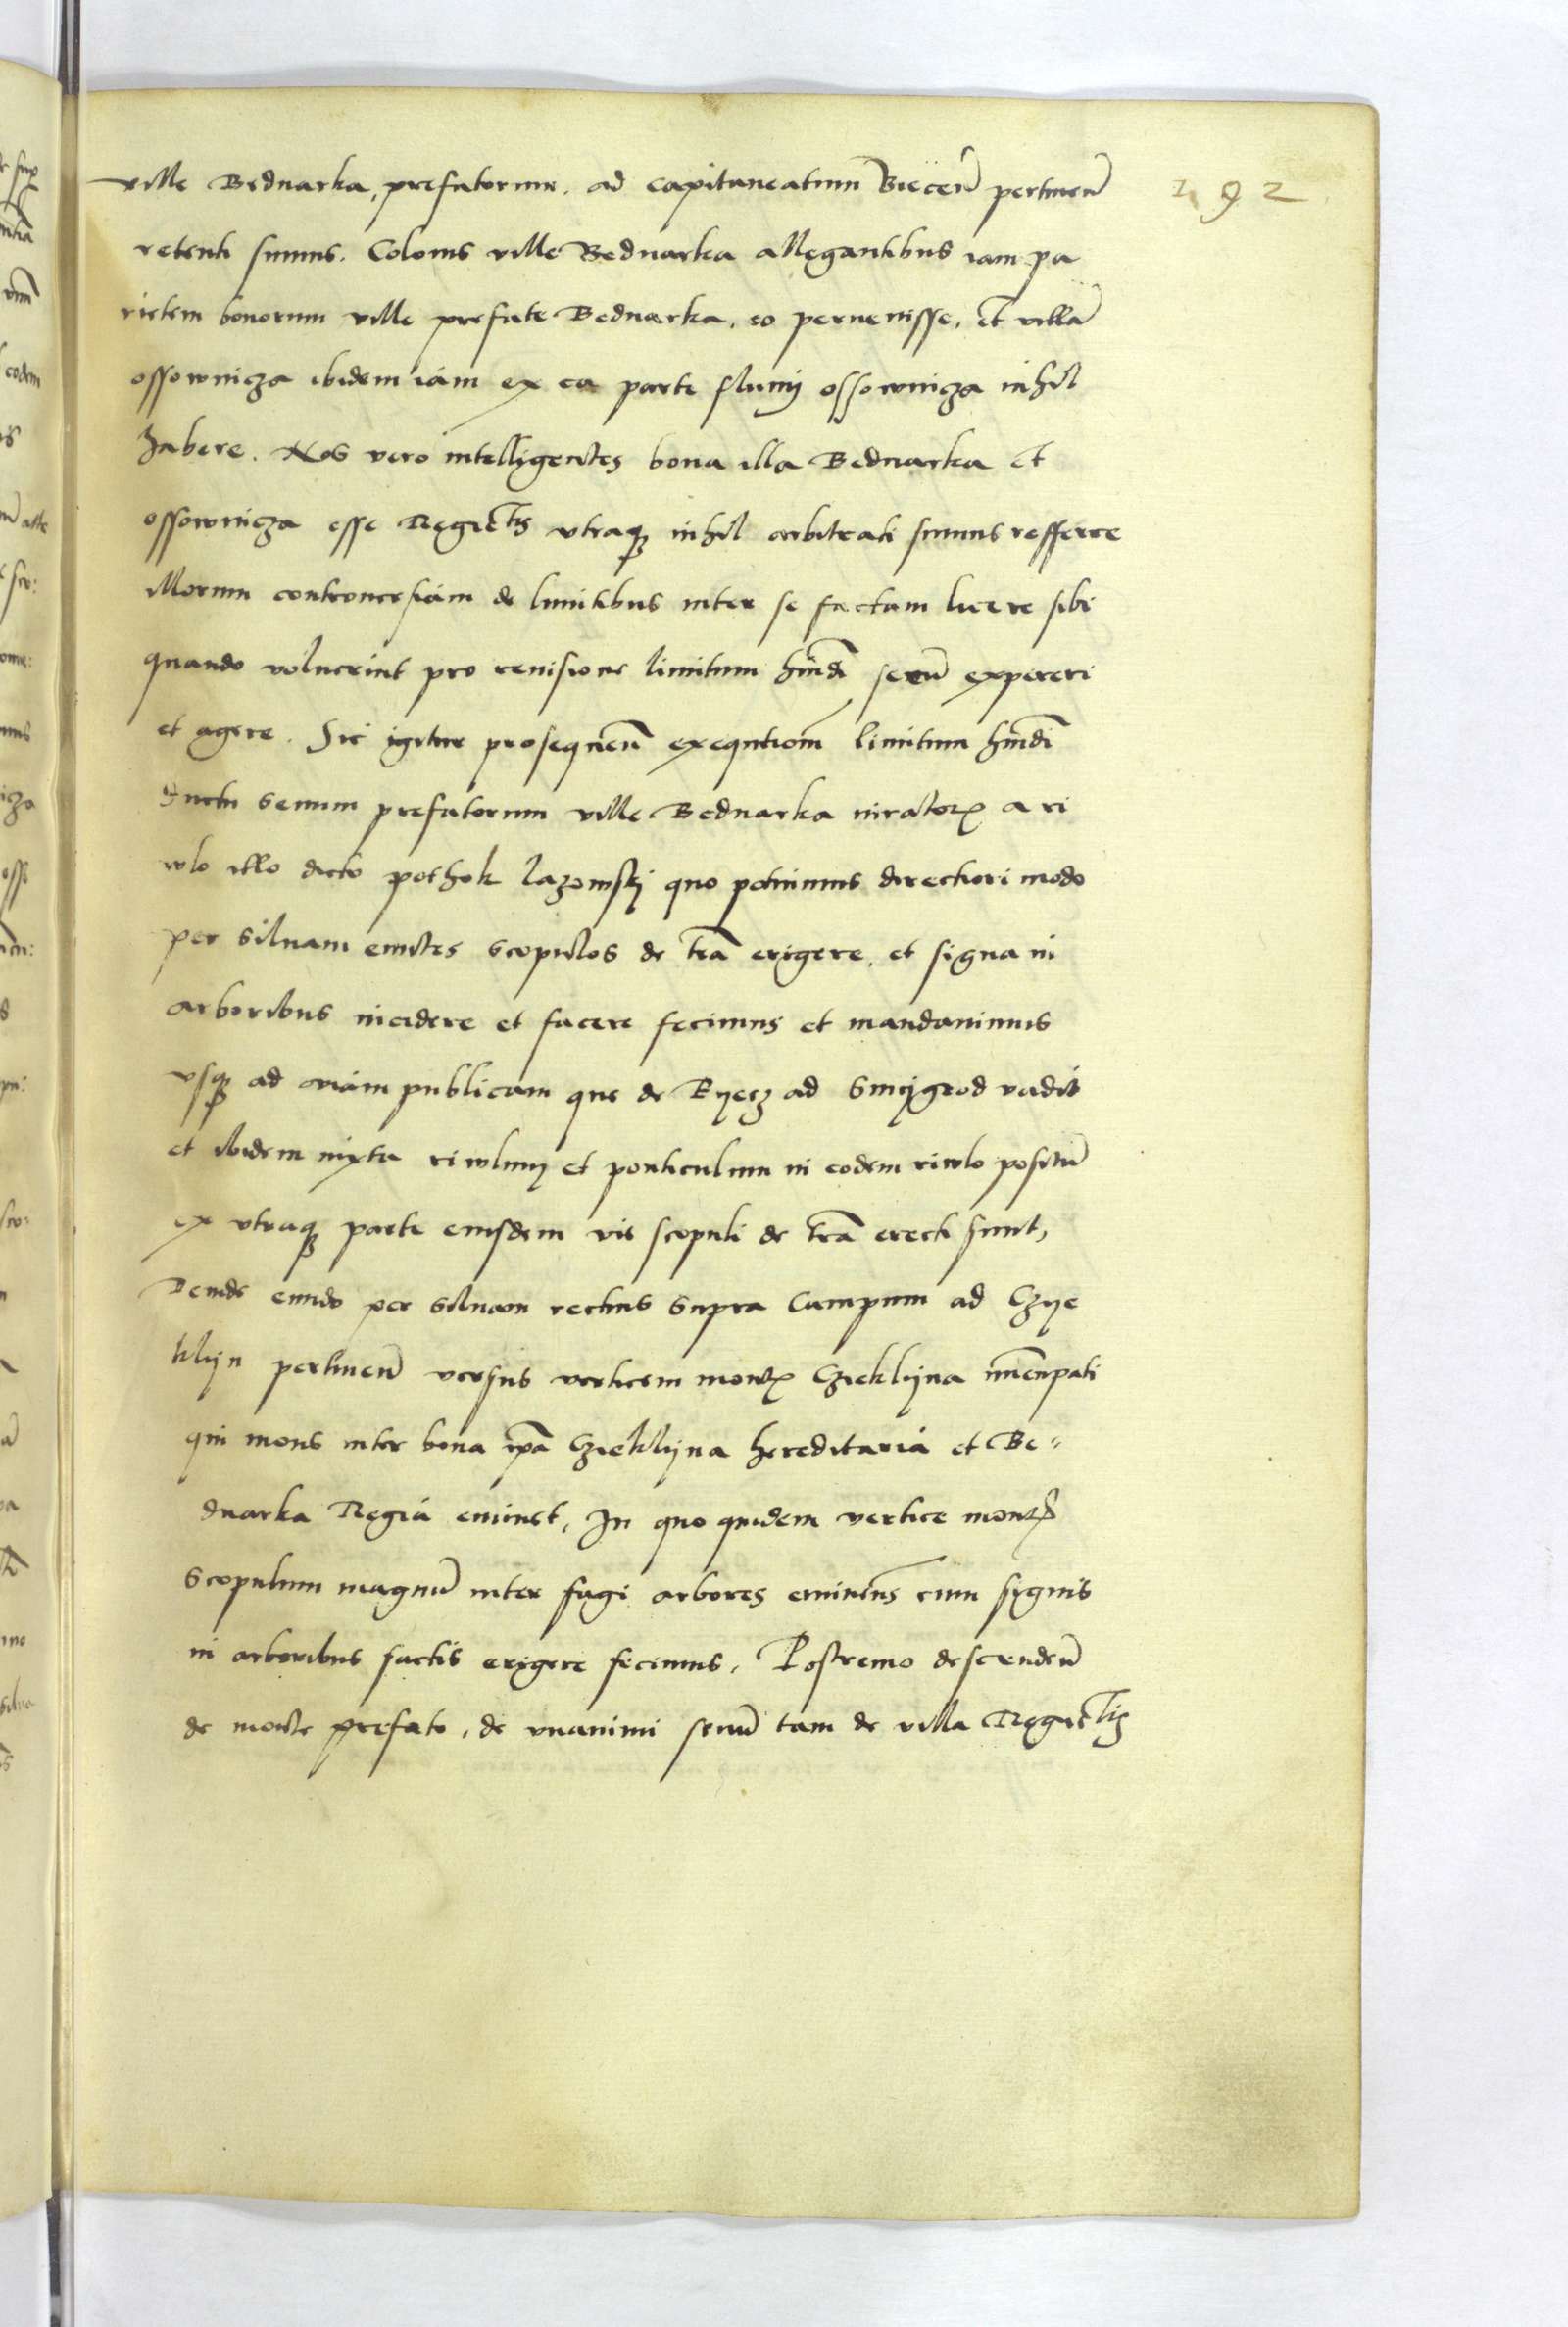 292
ville Bednarka, prefatorum. ad capitaneatum Biecen̄ pertinen̄
retenti sumus. Colonis ville Bednarka allegantibus iam pa
rietem bonorum ville prefate Bednarka, eo peruenisse, et villā
ossownicza ibidem iam ex ea parte fluuij ossownicza nihil
habere. Nos vero intelligentes bona illa Bednarka et
ossownicza esse Regie utraqꝫ nihil arbitrati sumus refferre
illorum controuersiam de limitibus inter se factam licere sibi
quando voluerint pro reuisione limitum secū experiri
et agere. Sic igitur prosequen̄ exequtionē limitum
ductu senum prefatorum ville Bednarka a ri
wlo illo dicto pothok lazowskj quo potuimus directiori modo
per siluam euntes scopulos de trā erigere, et signa in
arboribus incidere et facere fecimus et mandauimus
vsqꝫ ad viam publicam que de Byecz ad Smijgrod vadit
et ibidem iuxta riwlum et ponticulum in eodem riwlo positū
ex vtraqꝫ parte eiusdem vie scopuli de trā erecti sunt,
Deinde eundo per siluam rectius supra campum ad Czye
klijn pertinen̄ versus verticem montꝭ Czieklijna
qui mons inter bona ipā Czieklijna hereditaria et Be-
dnarka Regia eminet, In quo quidem vertice montꝭ
scopulum magnū inter fagi arbores eminens cum sygnis
in arboribus factis erigere fecimus, Postremo descenden̄
de monte prefato, de vnanimi senū tam de villa Regie